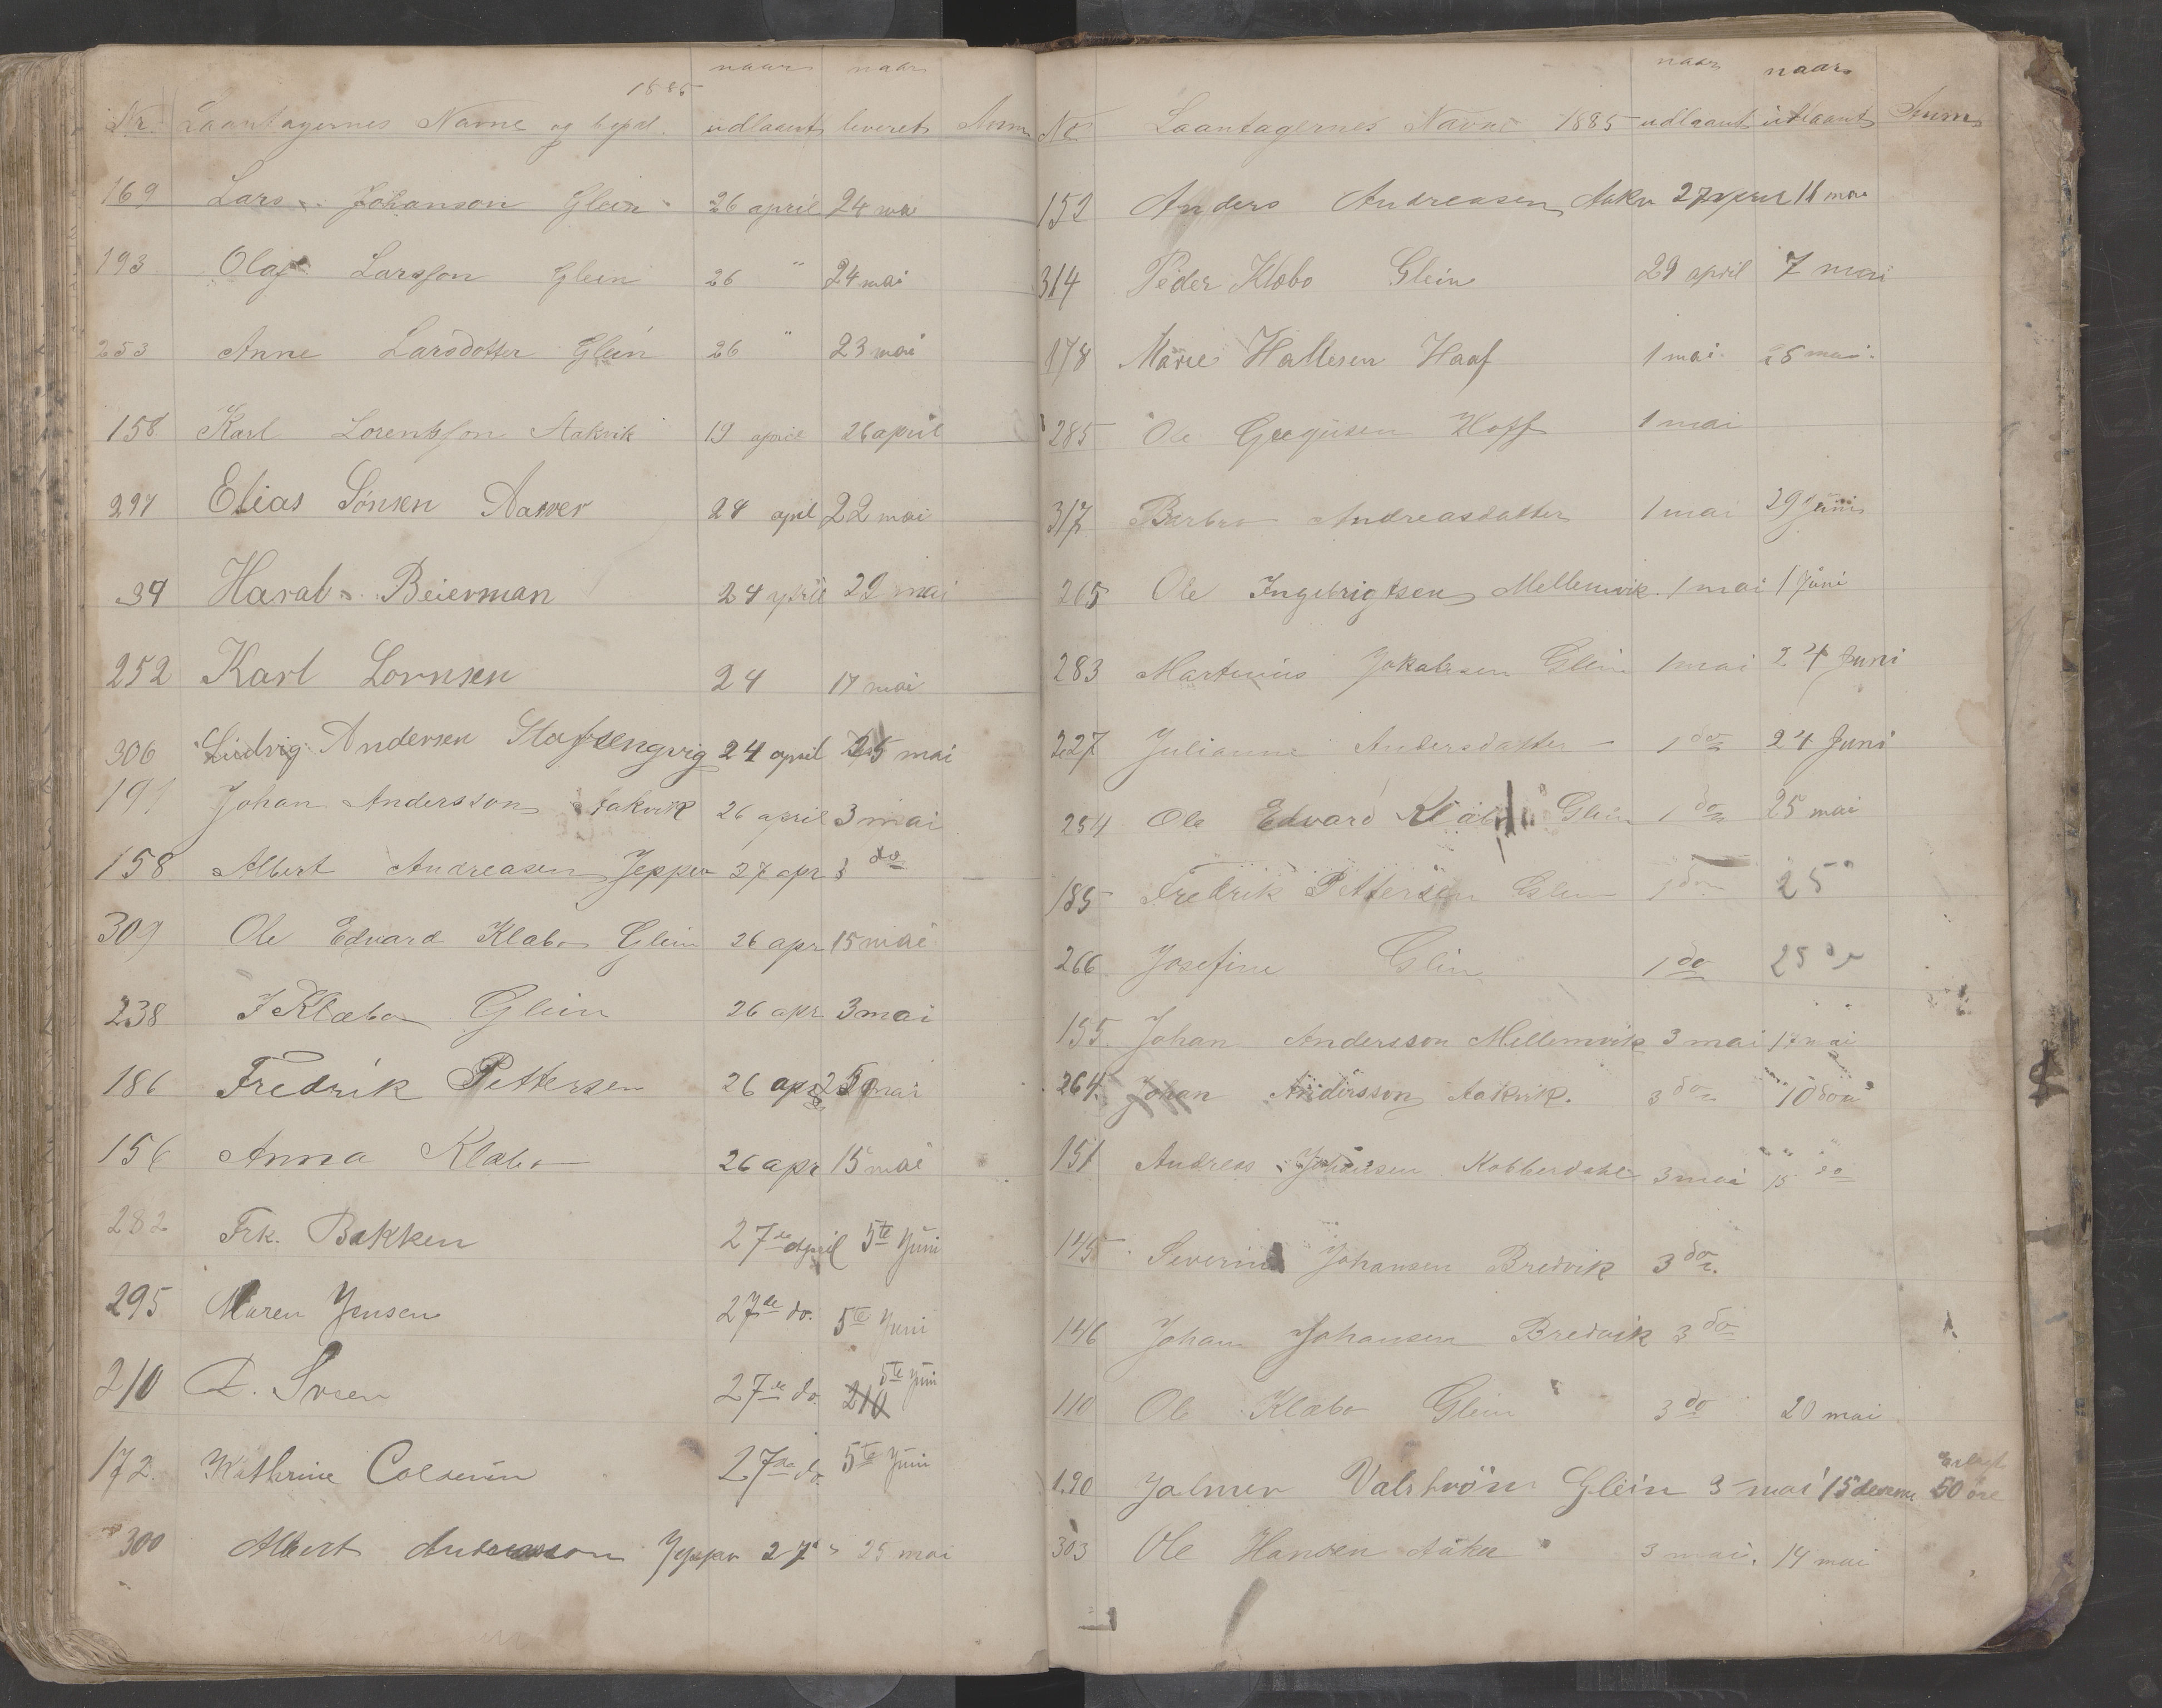 1885 naar naar
Nr. Laantagernes Navne og bopæl. udlaant leveret Anm
169 Lars Johanson Glein 26 april 24 mai
193 Olaf Larsson Glein 26 " 24 mai
253 Anne Larsdotter Glein 26 " 23 mai
158 Karl Lorentsson Aakvik 19 april 26 april
297 Elias Jönsen 24 april 22 mai
34 Beierman 24 april 22 mai
252 Karl Lornsen 24 17 mai
306 Ludvig Andersen 24 april 25 mai
Johan Andersson Aakvik 26 april 3 mai
158 Albert Andreasen Jeppev 27 apr 3 do
309 Ole Edvard Klæbo Glein 26 apr 15 mai
238 J Klæbo Glein 26 apr 3 mai
186 Fredrik Pettersen 26 apr mai
156 Anna Klæbo 26 apr 15 mai
282 Frk. Bakken 27de April 5te Juni
295 Maren Jensen 27de do. 5te Juni
210 27de do. 210 5te Juni
172. Kathrine 27de do. 5te Juni
300 Albert Andreasson 27 " 25 mai
naar naar
No Laantagernes Navne 1885 udlaant udlaant Anm
152 Anders Andreasen Aaker 27 april 11 mai
314 Peder Klæbo Glein 29 april 7 mai
178 Marie Hallesen Haaf 1 mai 25 mai.
285 Ole Hoff 1 mai
317 Berbro Andreasdatter 1 mai 29 Juni
265 Ole Ingebrigtsen Mellemvik. 1 mai 1 Juni
283 Martinus Jakobsen Glein 1 mai 24 Juni
227 Julianne Andersdatter 1 do 24 Juni
254 Ole Edvard Klæbo Glein 1 do 25 mai
185 Fredrik Pettersen Glein 1 do 25 "
266 Josefine Glein 1 do 25 do
155 Johan Andersson Mellemvik 3 mai 17 mai
264. Johan Andersson Aakvik. 3 do 10 do
151 Andreas Johansen Kobberdahl 3 mai 15 do
145 Severin Johansen Breivik 3 do.
146 Johan Johansen Breivik 3 do
110 Ole Klæbo Glein 3 do 20 mai
190 Jalmer Valström Glein 3 mai 15 desem 50 øre
303 Ole Hansen Aaker 3 mai. 14 mai